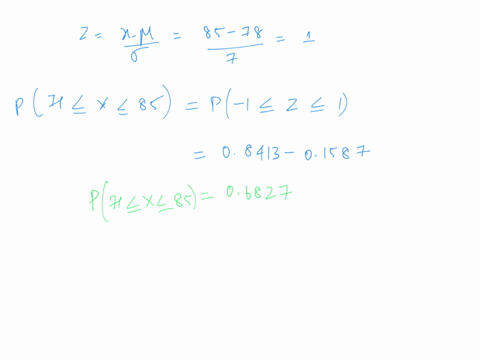 Z = x-μ/σ = 85-78/7 = 1
P(71 ≤ X ≤ 85) = P(-1 ≤ Z ≤ 1)
= 0.8413 - 0.1587
P(71 ≤ X ≤ 85) = 0.6827